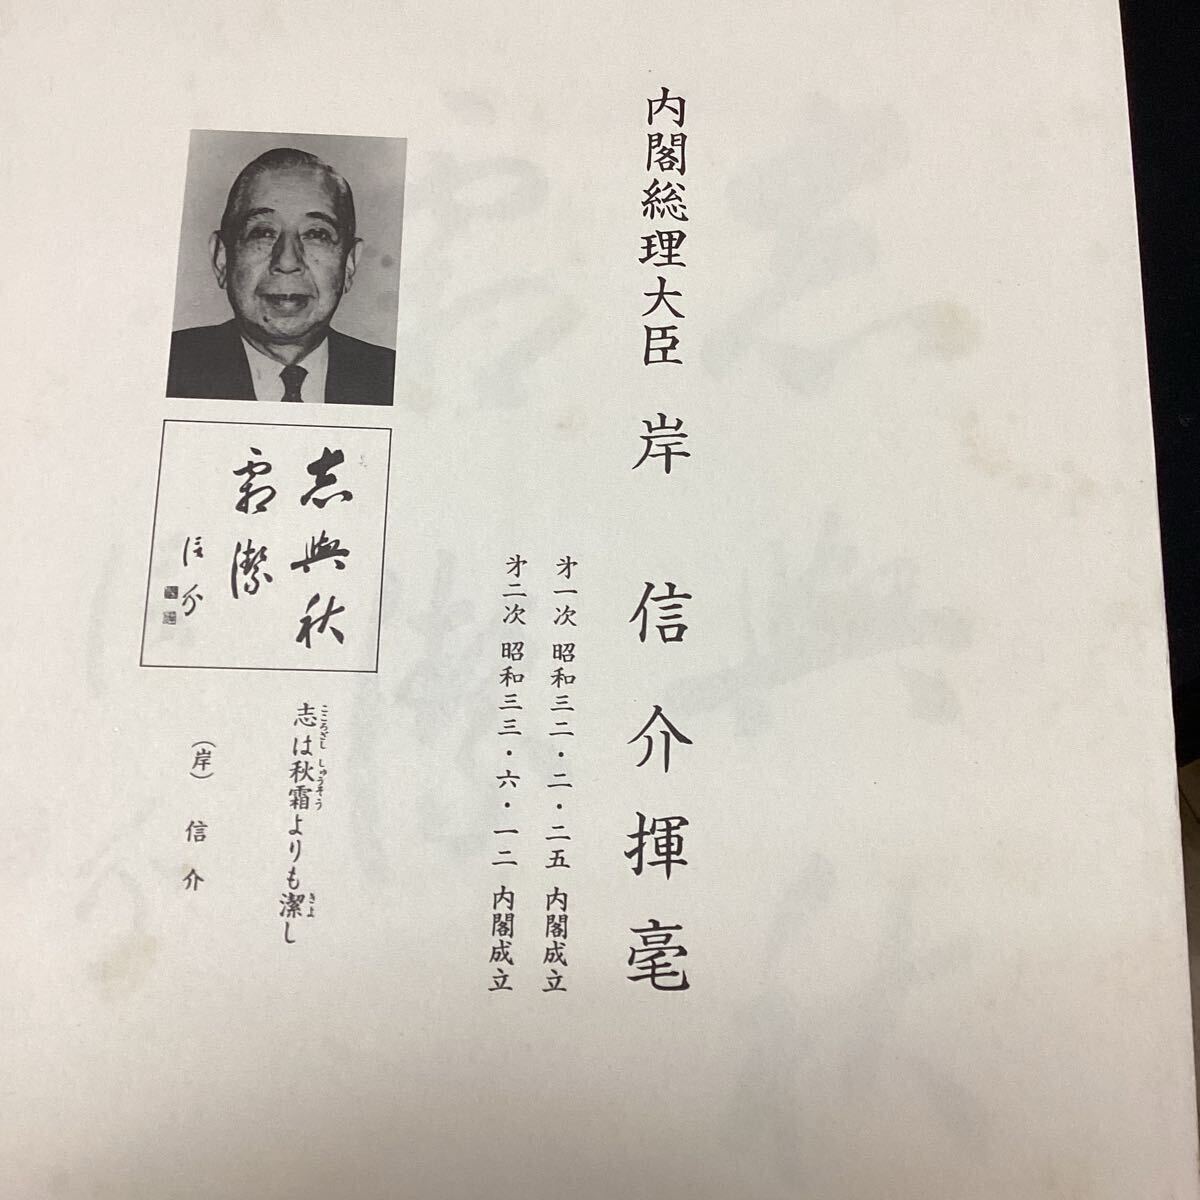 内閣総理大臣 岸 信介揮毫
㐧一次 昭和三二・二・二五 内閣成立
㐧二次 昭和三三・六・一二 内閣成立
志與秋
霜潔
信介
志は秋霜よりも潔し
こころざし しゅうそう きよ
(岸) 信介